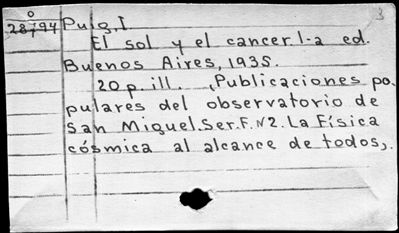 3
O
28794 Puig, I
El sol y el cancer. 1-a ed.
Buenos Aires, 1935.
20 p. ill. "Publicaciones po-
pulares del observatorio de
San Miguel. Ser. F. N2. La Física
cósmica al alcance de todos„.